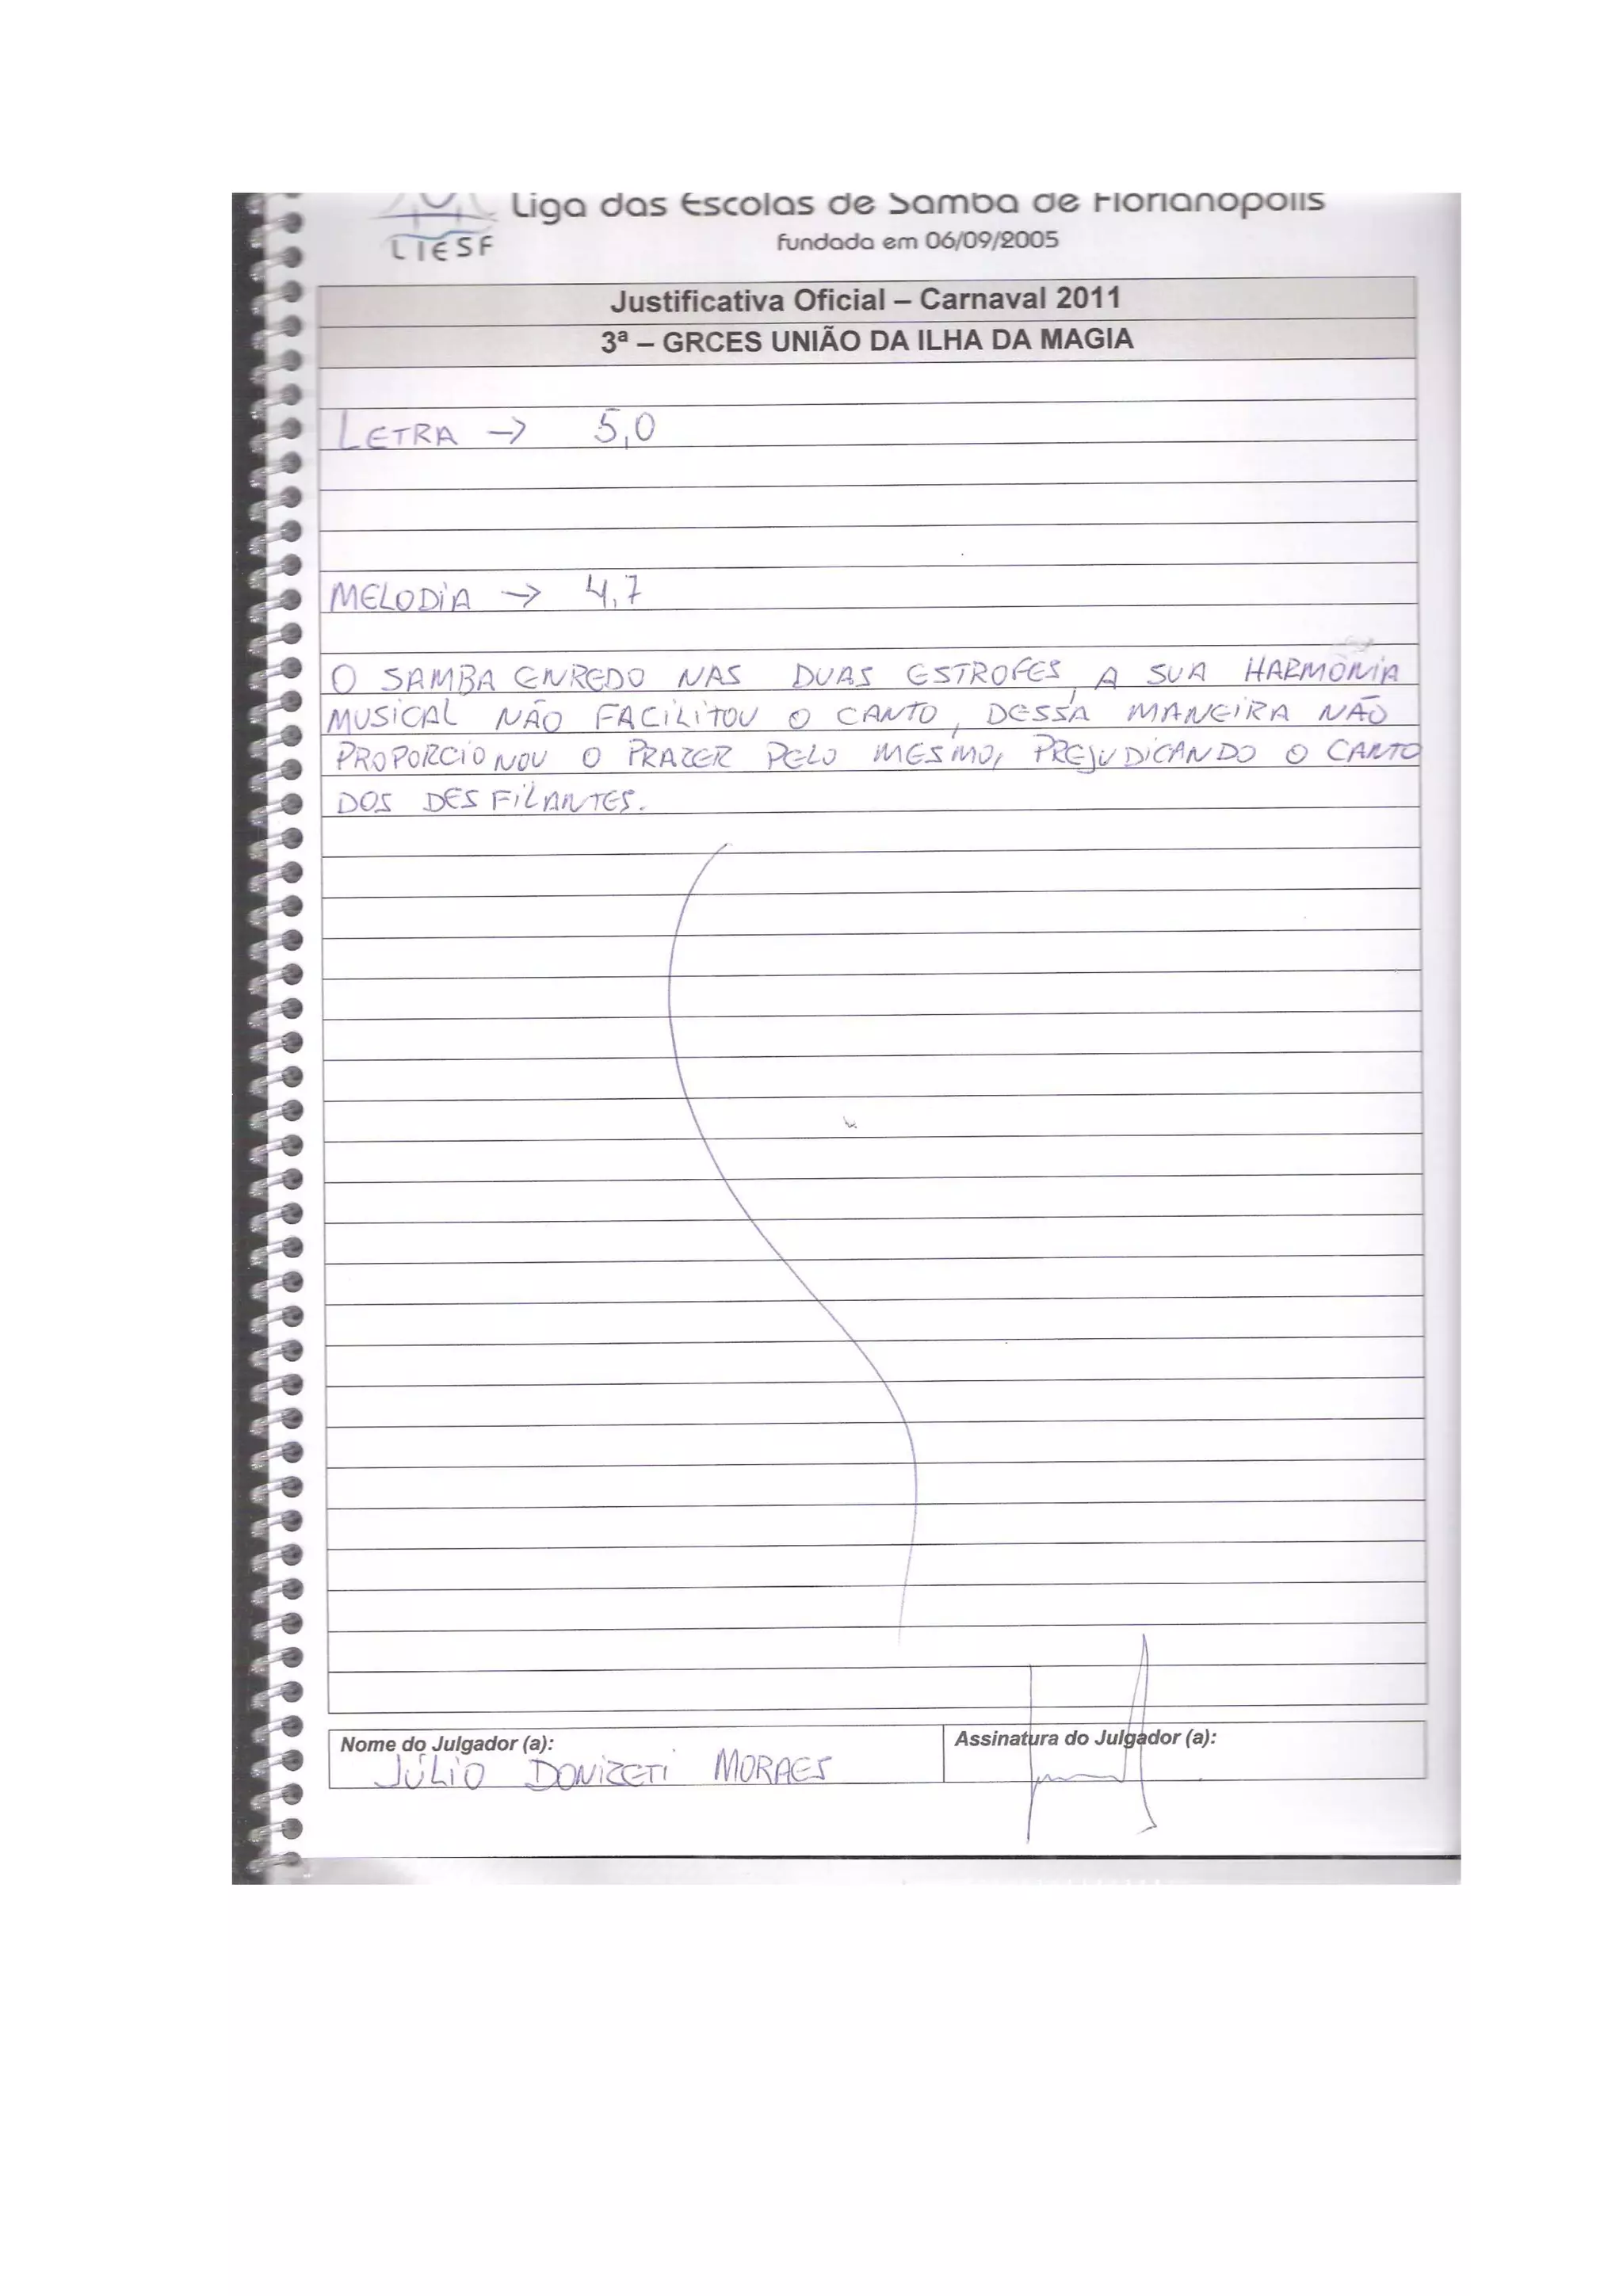 Liga das Escolas de Samba de Florianópolis
LIESF
fundada em 06/09/2005
Justificativa Oficial – Carnaval 2011
3ª – GRCES UNIÃO DA ILHA DA MAGIA
LETRA → 5,0
MELODIA → 4,7
O SAMBA ENREDO NAS DUAS ESTROFES, A SUA HARMONIA
MUSICAL NÃO FACILITOU O CANTO, DESSA MANEIRA NÃO
PROPORCIONOU O PRAZER PELO MESMO, PREJUDICANDO O CANTO
DOS DESFILANTES.
Nome do Julgador (a):
JÚLIO DONIZETI MORAES
Assinatura do Julgador (a):